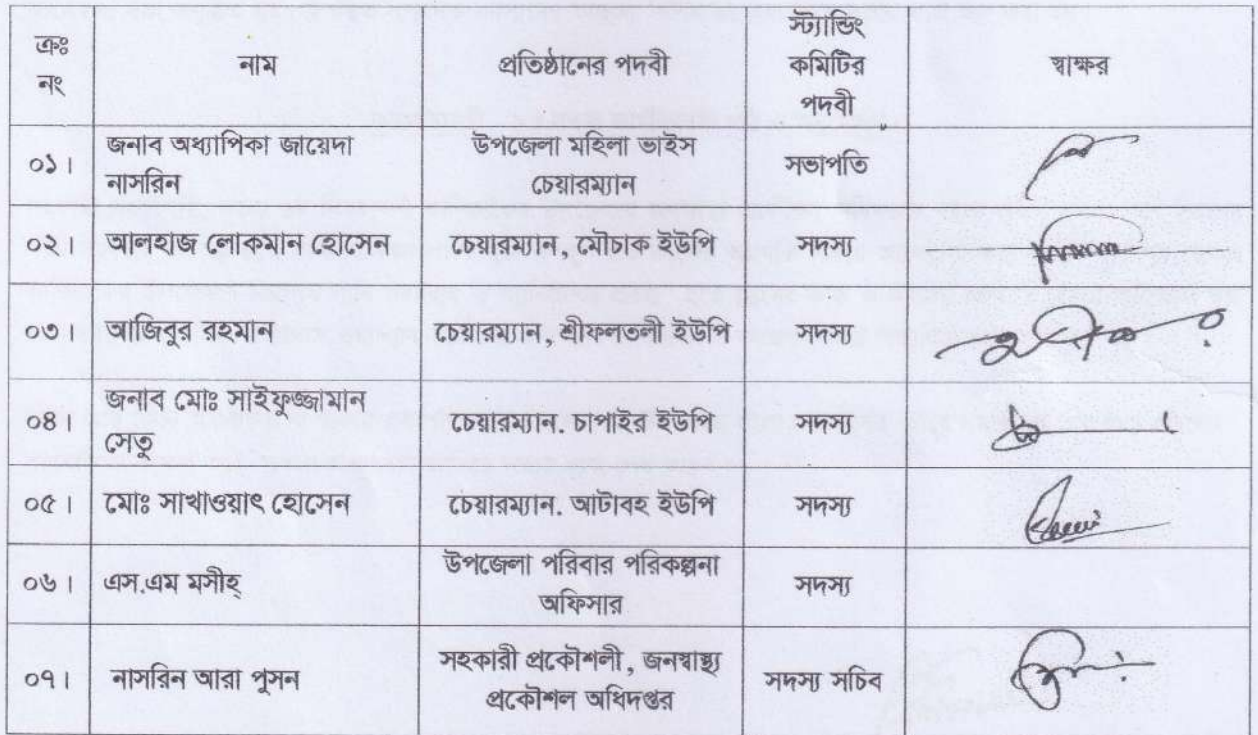 ক্রঃ নং নাম প্রতিষ্ঠানের পদবী স্ট্যান্ডিং কমিটির পদবী স্বাক্ষর
০১। জনাব অধ্যাপিকা জায়েদা নাসরিন উপজেলা মহিলা ভাইস চেয়ারম্যান সভাপতি
০২। আলহাজ লোকমান হোসেন চেয়ারম্যান, মৌচাক ইউপি সদস্য
০৩। আজিবুর রহমান চেয়ারম্যান, শ্রীফলতলী ইউপি সদস্য
০৪। জনাব মোঃ সাইফুজ্জামান সেতু চেয়ারম্যান. চাপাইর ইউপি সদস্য
০৫। মোঃ সাখাওয়াৎ হোসেন চেয়ারম্যান. আটাবহ ইউপি সদস্য
০৬। এস.এম মসীহ্ উপজেলা পরিবার পরিকল্পনা অফিসার সদস্য
০৭। নাসরিন আরা পুসন সহকারী প্রকৌশলী, জনস্বাস্থ্য প্রকৌশল অধিদপ্তর সদস্য সচিব